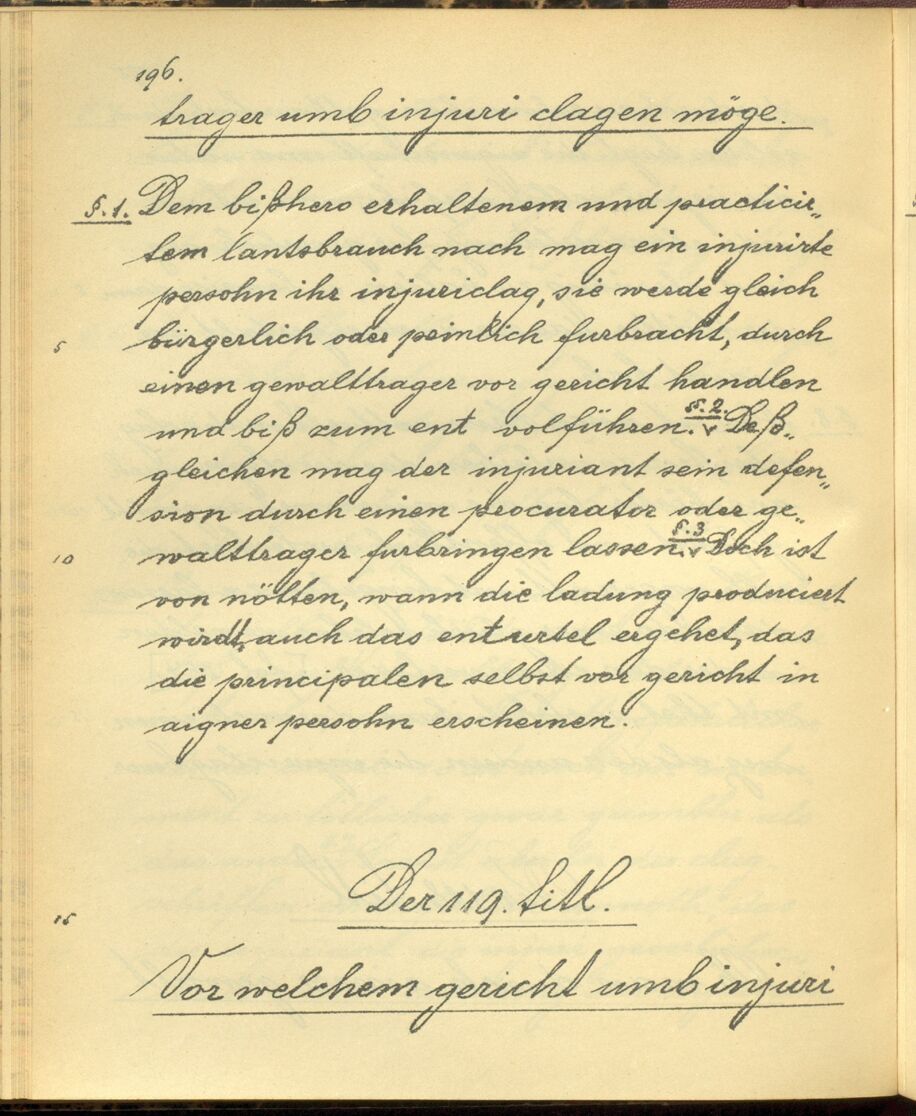 196.
trager umb injuri clagen möge.
§.1. Dem bißhero erhaltenem und practicir„
tem lantsbrauch nach mag ein injurirte
persohn ihr injuriclag, sie werde gleich
5 bürgerlich oder peinlich furbracht, durch
einen gewalttrager vor gericht handlen
und biß zum ent volführen. §.2. Deß„
gleichen mag der injuriant sein defen„
sion durch einen procurator oder ge„
10 walttrager furbringen lassen. §.3 Doch ist
von nötten, wann die ladung produciert
wirdt, auch das enturtel ergehet, das
die principalen selbst vor gericht in
aigner persohn erscheinen.
15 Der 119. titl.
Vor welchem gericht umb injuri